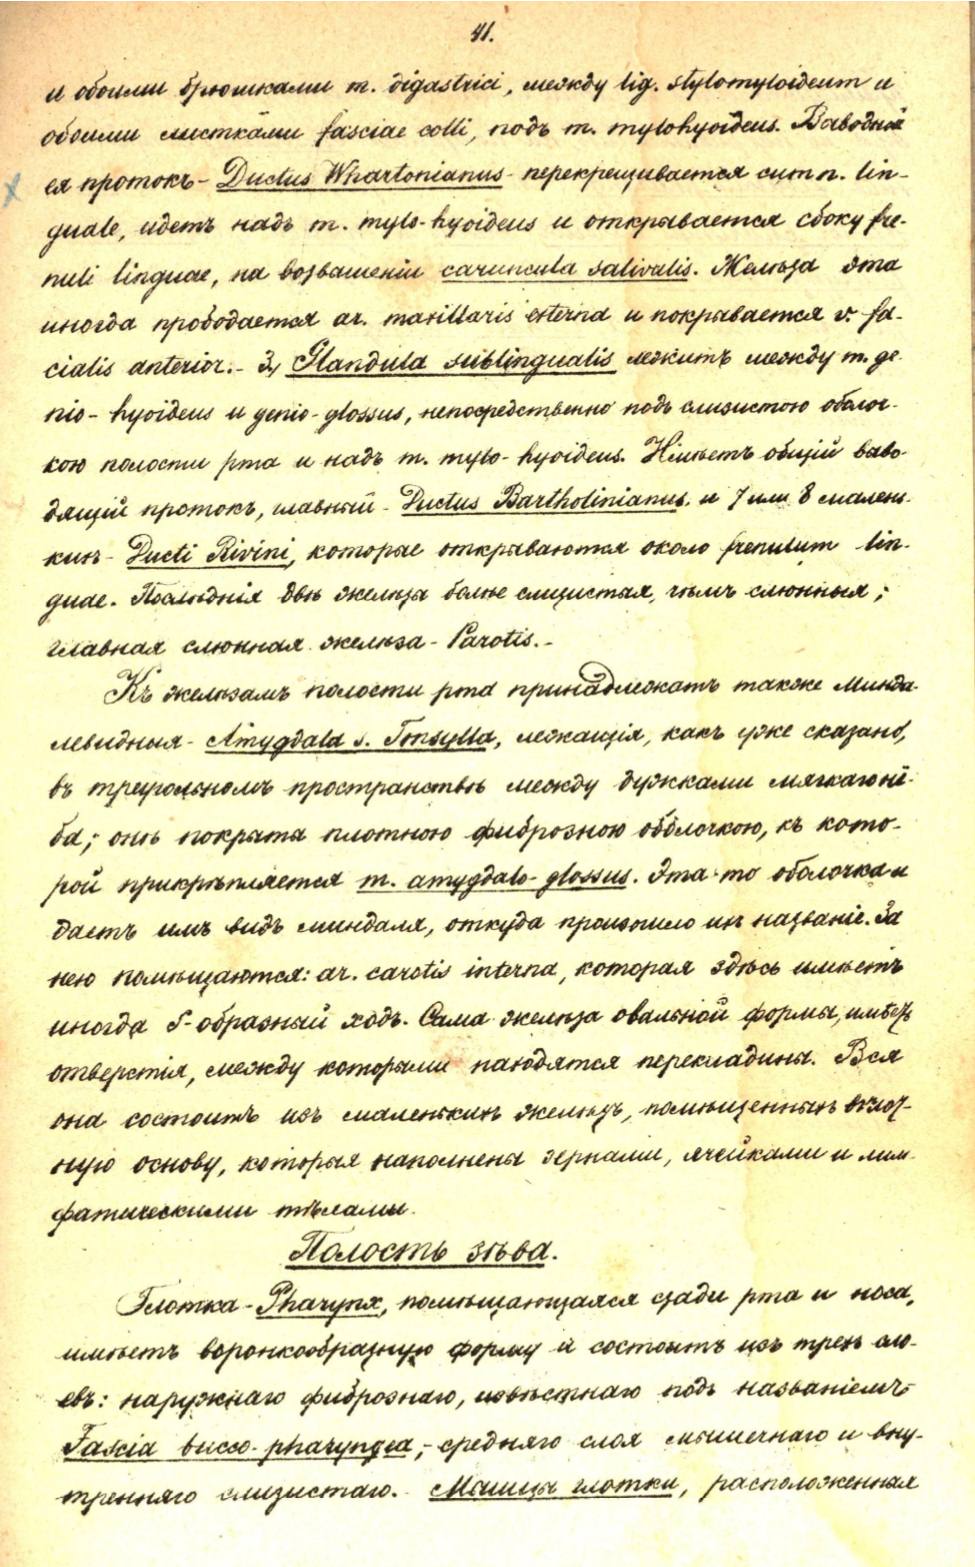 41.
и обоими брюшками m. digastrici, между lig. stylomyloideum и
обоими листками fasciae colli, подъ m. mylohyoideus. Выводной
ея протокъ - Ductus Whartonianus - перекрещивается съ n. lin-
guale, идетъ надъ m. mylo-hyoideus и открывается сбоку fre-
nuli linguae, на возвышеніи caruncula salivalis. Железа эта
иногда прободается ar. maxillaris externa и покрывается v. fa-
cialis anterior. - 3, Glandula sublingualis лежитъ между m. ge-
nio-hyoideus и genio-glossus, непосредственно подъ слизистою оболоч-
кою полости рта и надъ m. mylo-hyoideus. Имѣетъ общій выво-
дящій протокъ, главный - Ductus Bartholinianus. и 7 или 8 малень-
кихъ - Ducti Rivini, которые открываются около frenulum lin-
guae. Послѣднія двѣ железы болѣе слизистыя, чѣмъ слюнныя;
главная слюнная железа - Parotis. -
Къ железамъ полости рта принадлежатъ также Минда-
левидныя - Amygdala s. Tonsylla, лежащія, какъ уже сказано,
въ треугольномъ пространствѣ между дужками мягкаго нё-
ба; онѣ покрыты плотною фиброзною оболочкою, къ кото-
рой прикрѣпляется m. amygdalo-glossus. Эта-то оболочка и
даетъ имъ видъ миндаля, откуда произошло ихъ названіе. За
нею помѣщаются: ar. carotis interna, которая здѣсь имѣетъ
иногда S-образный ходъ. Сама железа овальной формы, имѣетъ
отверстія, между которыми находятся перекладины. Вся
она состоитъ изъ маленькихъ железъ, помѣщенныхъ
ную основу, которыя наполнены зернами, ячейками и лим-
фатическими тѣлами.
Полость зѣва.
Глотка - Pharynx, помѣщающаяся сзади рта и носа,
имѣетъ воронкообразную форму и состоитъ изъ трехъ сло-
евъ: наружнаго фибрознаго, извѣстнаго подъ названіемъ -
Fascia bucco-pharyngea, - средняго слоя мышечнаго и вну-
тренняго слизистаго. - Мышцы глотки, расположенныя